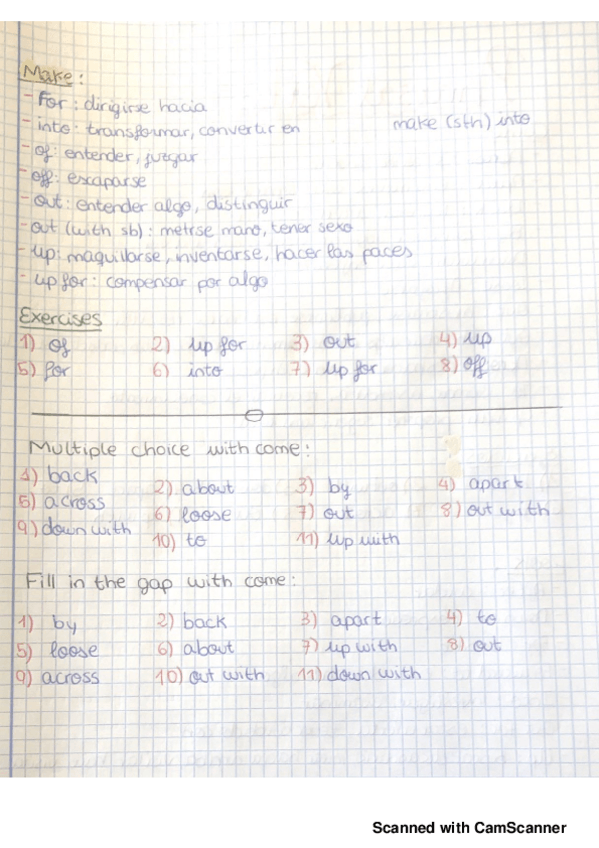 Make:
- For: dirigirse hacia
- into: transformar, convertir en make (sth) into
- of: entender, juzgar
- off: escaparse
- out: entender algo, distinguir
- out (with sb): metrse mano, tener sexo
- up: maquillarse, inventarse, hacer las paces
- up for: compensar por algo
Exercises
1) of 2) up for 3) out 4) up
5) for 6) into 7) up for 8) off
Multiple choice with come:
1) back 2) about 3) by 4) apart
5) across 6) loose 7) out 8) out with
9) down with 10) to 11) up with
Fill in the gap with come:
1) by 2) back 3) apart 4) to
5) loose 6) about 7) up with 8) out
9) across 10) out with 11) down with
Scanned with CamScanner